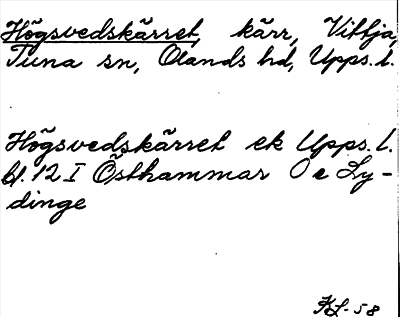 Högsvedskärret, kärr, Vittja,
Tuna sn, Olands hd, Upps. l.
Högsvedskärret ek Upps. l.
bl. 12 I Östhammar O e Ly-
dinge
KL-58